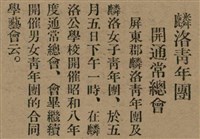 麟洛青年團
開通常總會
屏東郡麟洛青年團及
麟洛女子青年團、於五
月五日下午一時、在麟
洛公學校開催昭和八年
度通常總會、會畢繼續
開催男女青年團的合同
學藝會云。